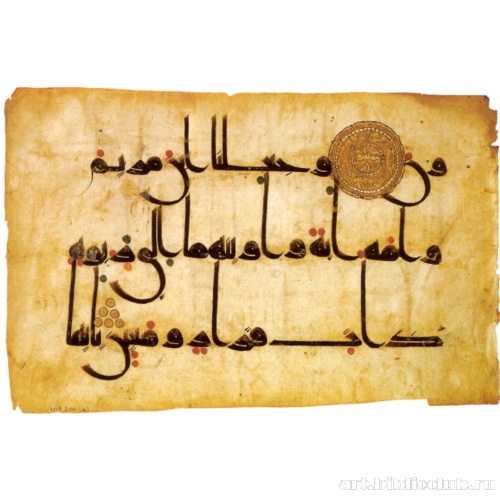 ون وجعلنا ابن مريم
وامه اية واوينهما الى ربوة
ذات قرار ومعين يايها
art.biblioclub.ru